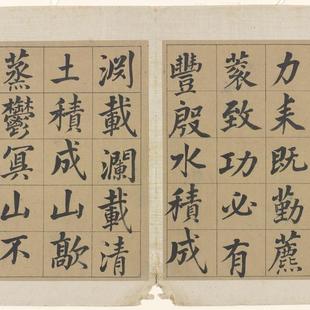 力耒既勤藨
蔉致功必有
豐殷水積成
渕載瀾載清
土積成山歊
蒸鬱冥山不